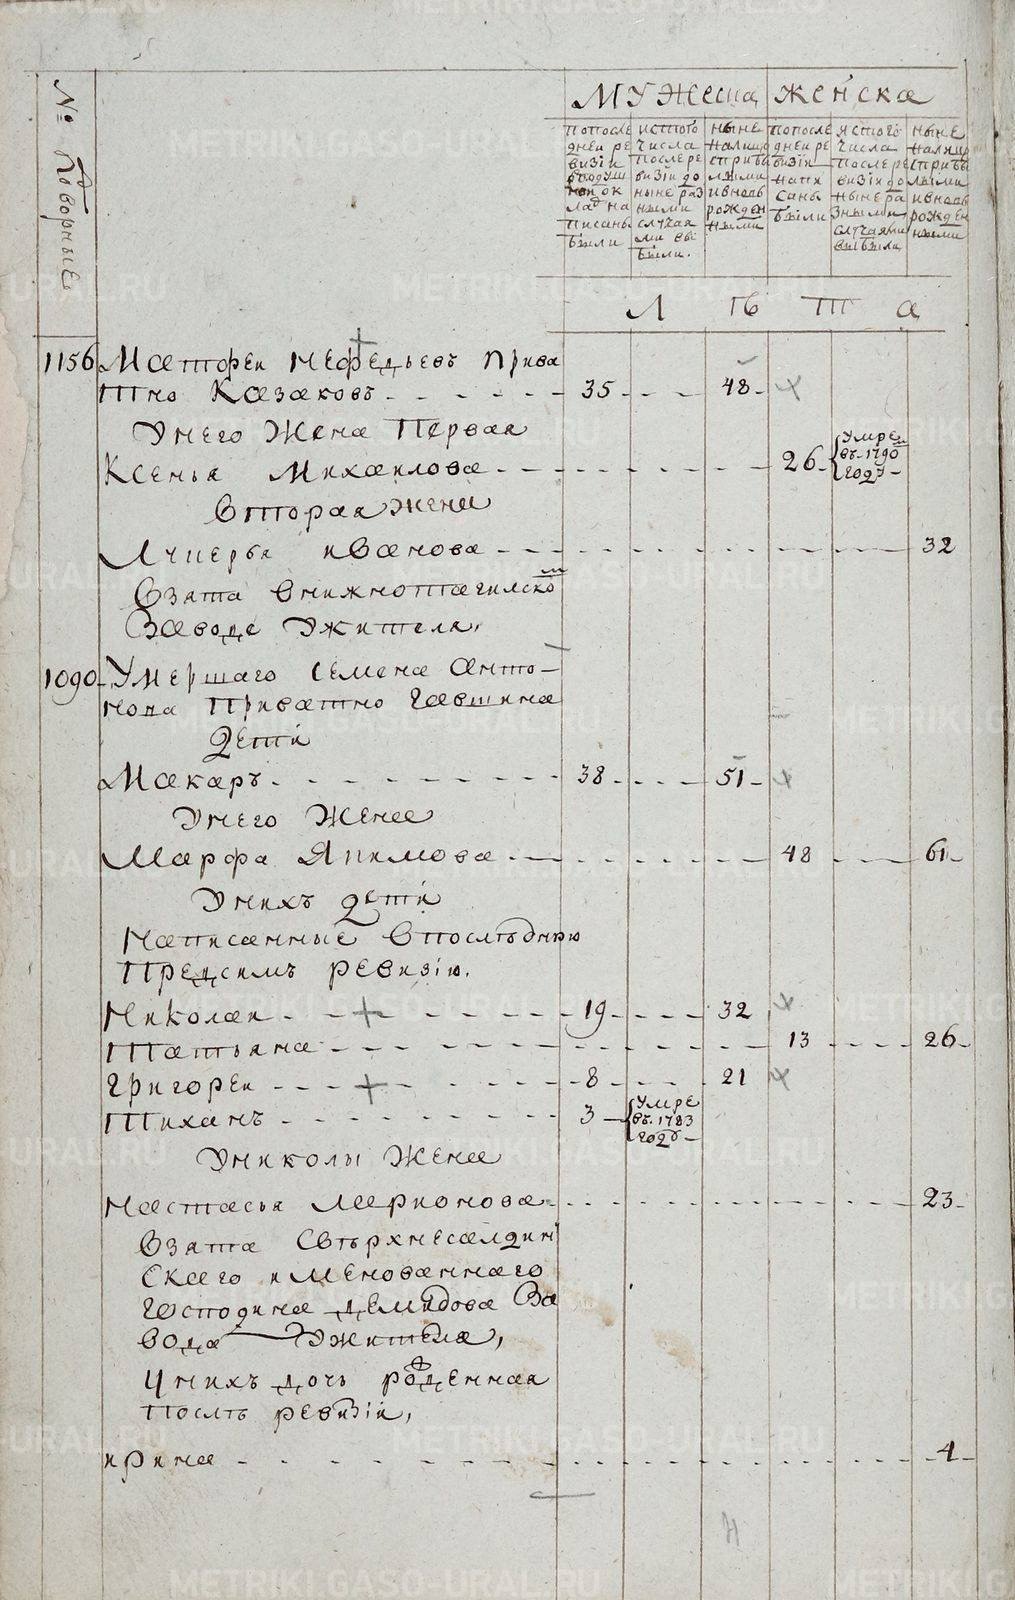 № Дворные
МУЖеска Женска
попосле
дней ре
визiи
в подуш
ной ок
лад на
писаны
были
истого
числа
после ре
визiи до
ныне раз
ными
случая
ми вы
были.
Ныне
налицо
сприбы
лыми
ивновь
рожден
ными
попосле
дней ре
визiи
напи
саны
были
истого
числа
после ре
визiи до
ныне ра
зными
случаями
выбыли
Ныне
налицо
сприбы
лыми
ивновь
рожден
ными
Л ѣ т а
1156 Матфеи Нефедьевъ прива
тно Казаковъ 35 48
Унего Жена Первая
Ксенья Михаилова 26 Умре
въ 1790м
году
Вторая жена
Лукерья иванова 32
Взята внижнотагилском
Заводе Ужителя,
1090 Умершаго Семена Анто-
нова Приватно Гавшина
дети
Макаръ 38 51
Унего Жена
Марфа Якимова 48 61
Унихъ дети
Написанные впоследнюю
Предсимъ ревизiю.
Николаи 19 32
Татьяна 13 26
Григореи 8 21
Тиханъ 3 Умре
въ 1783
году
Униколы Жена
Настасья Ларионова 23
Взята Свѣрхнесалдин
Скаго имЕнованнаго
Господина демидова За
вода Ужителя,
Унихъ дочь рожденная
послѣ ревизiи,
ирина 4
METRIKI.GASO-URAL.RU